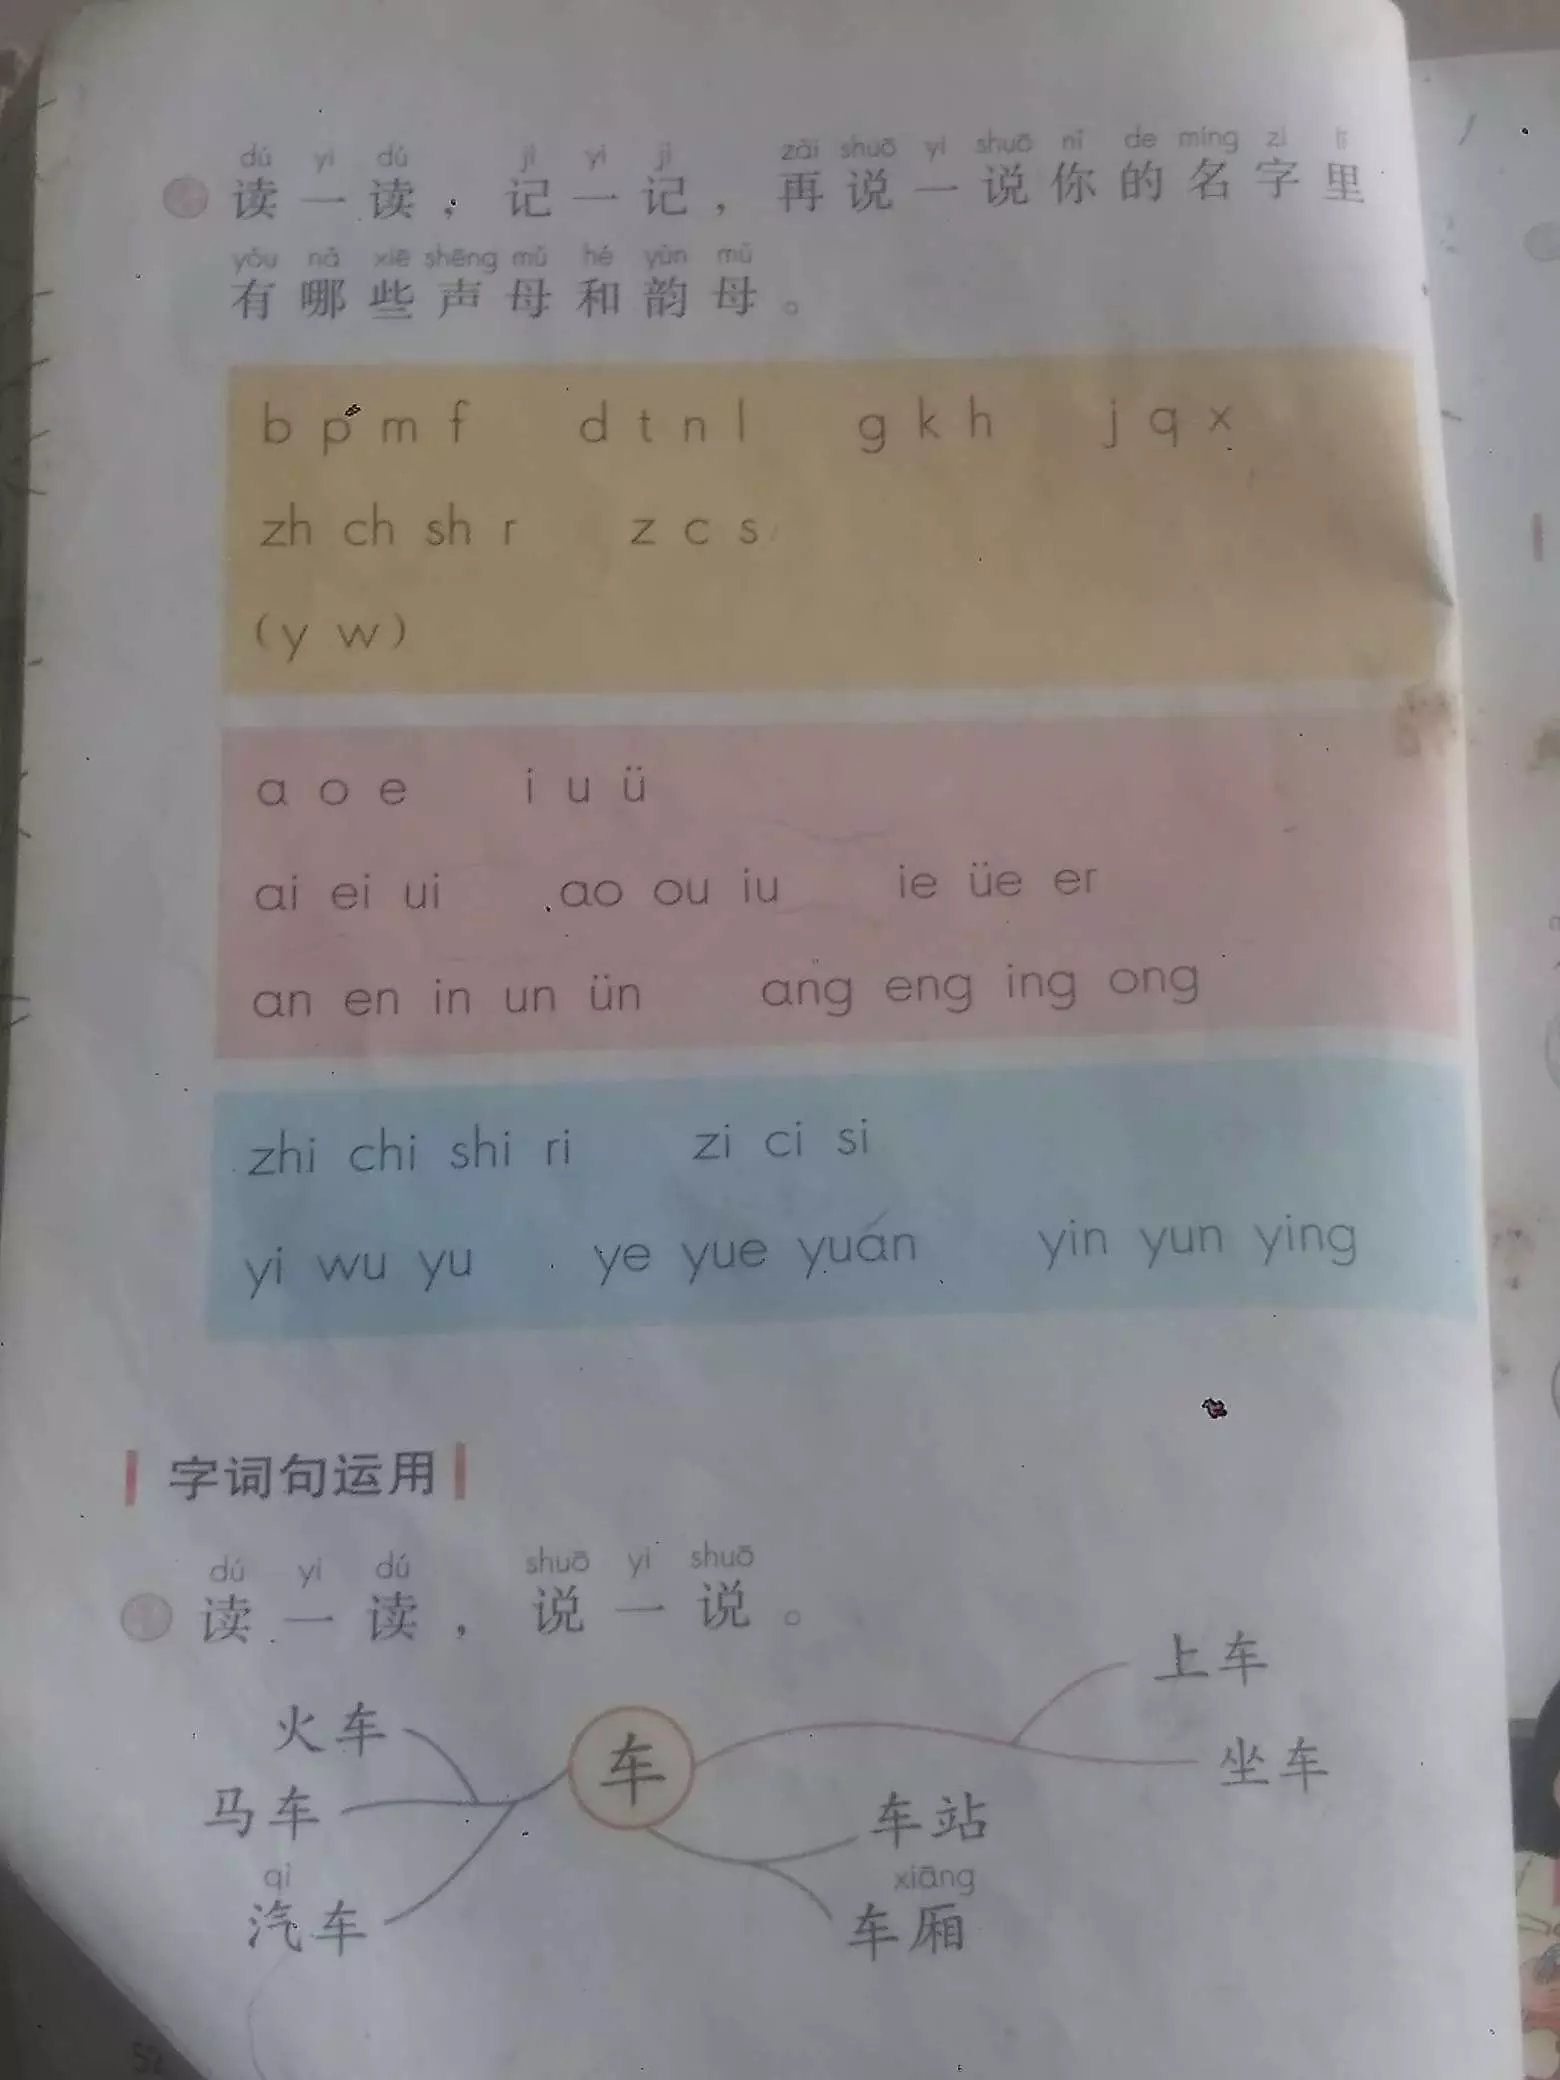 dú yi dú jì yi jì zài shuō yi shuō nǐ de míng zi lǐ
读一读，记一记，再说一说你的名字里
yǒu nǎ xiē shēng mǔ hé yùn mǔ
有哪些声母和韵母。
b p m f d t n l g k h j q x
zh ch sh r z c s
(y w)
a o e i u ü
ai ei ui ao ou iu ie üe er
an en in un ün ang eng ing ong
zhi chi shi ri zi ci si
yi wu yu ye yue yuán yin yun ying
字词句运用
dú yi dú shuō yi shuō
读一读，说一说。
上车
火车
车
坐车
马车
车站
qì
xiāng
汽车
车厢